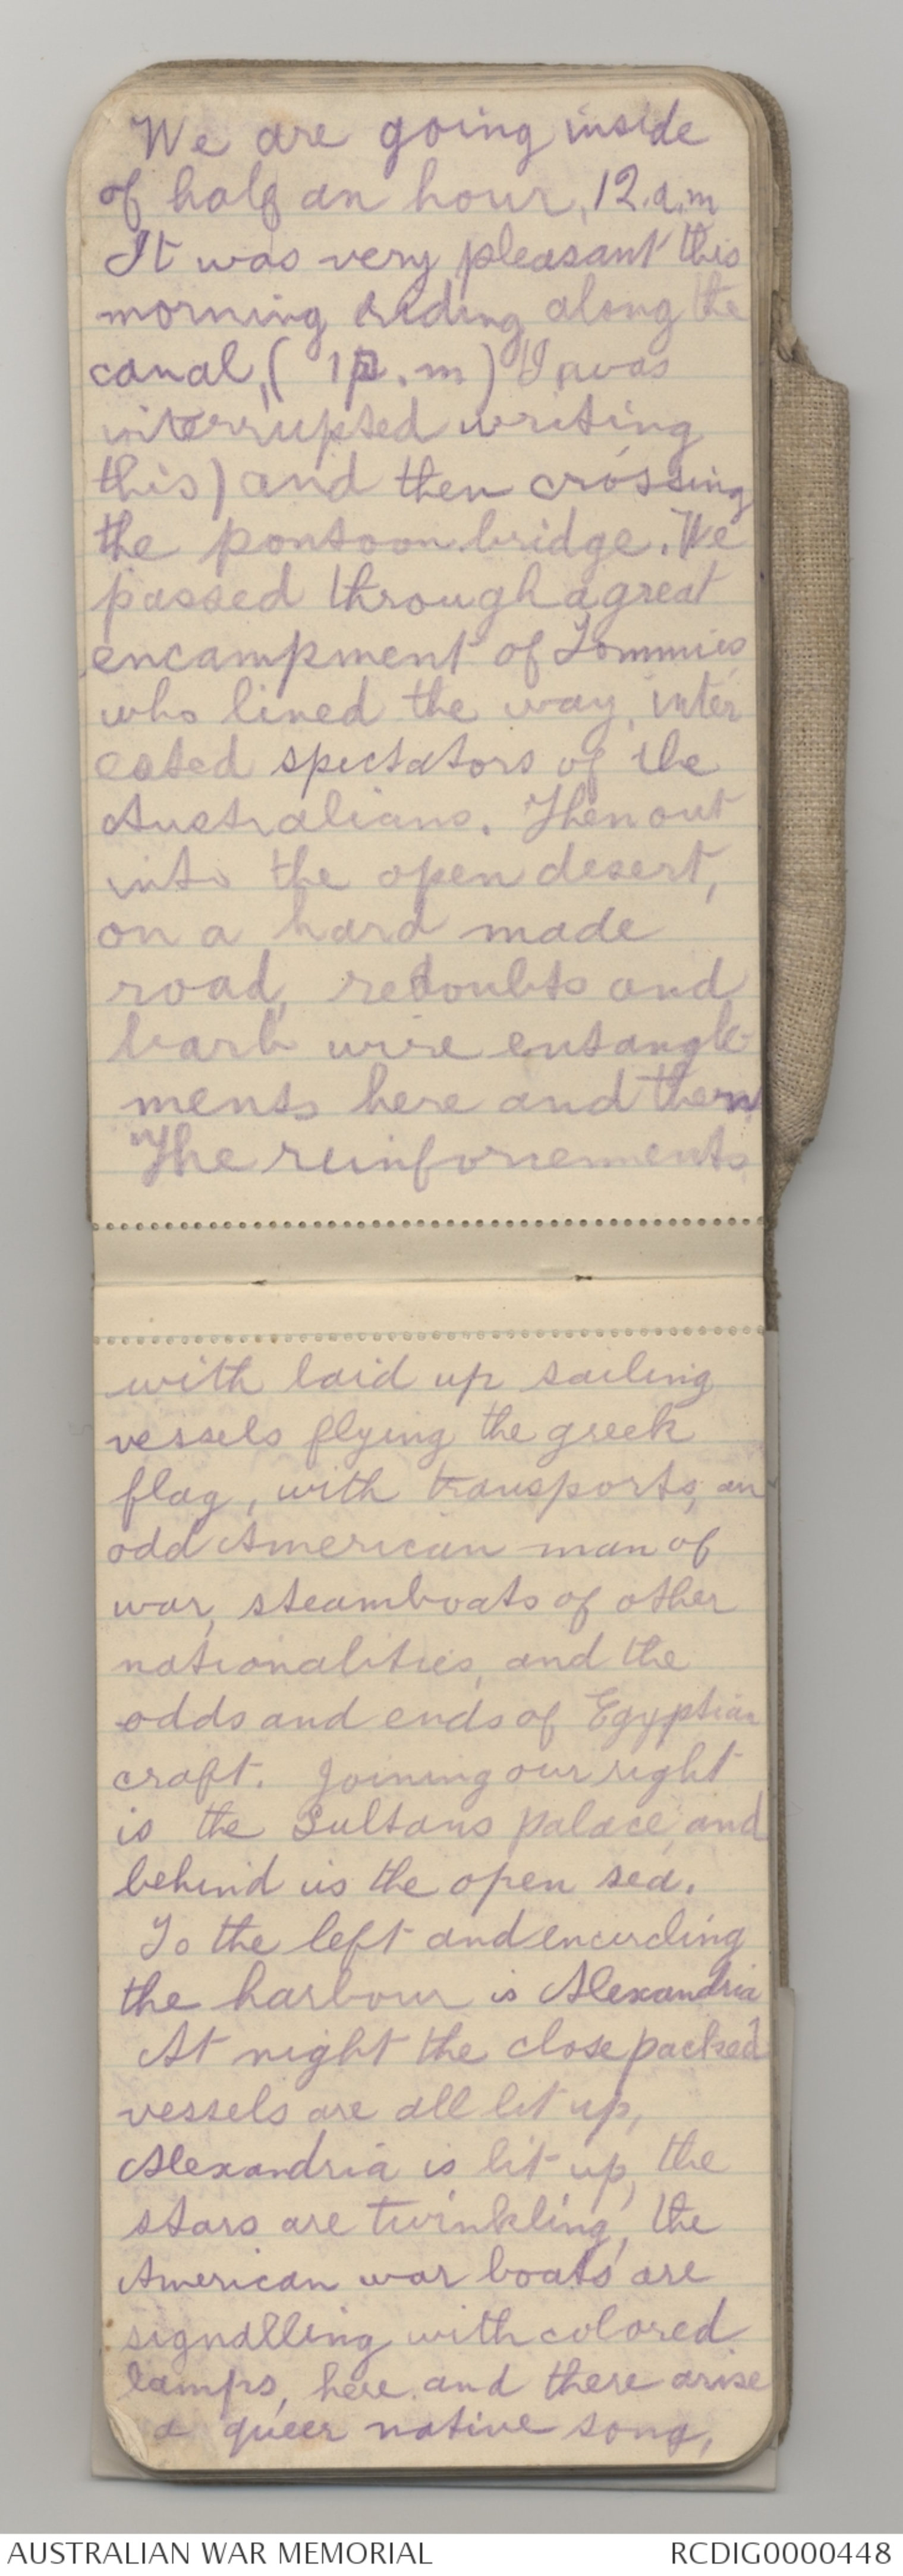 We are going inside
of half an hour, 12.a.m
It was very pleasant this
morning riding along the
canal, ( 1p.m) I was
interrupted writing
this) and then crossing
the pontoon bridge. We
passed through a great
encampment of Tommies
who lined the way, inter
ested spectators of the
Australians. Then out
into the open desert,
on a hard made
road, redoubts and
barb wire entangle-
ments here and there
The reinforcements
with laid up sailing
vessels flying the greek
flag, with transports, an
odd American man of
war, steamboats of other
nationalities, and the
odds and ends of Egyptian
craft. Joining our right
is the Sultans palace, and
behind us the open sea.
To the left and encircling
the harbour is Alexandria
At night the close packed
vessels are all lit up,
Alexandria is lit up, the
stars are twinkling, the
American war boats are
signalling with colored
lamps, here and there arise
a queer native song,
AUSTRALIAN WAR MEMORIAL
RCDIG0000448